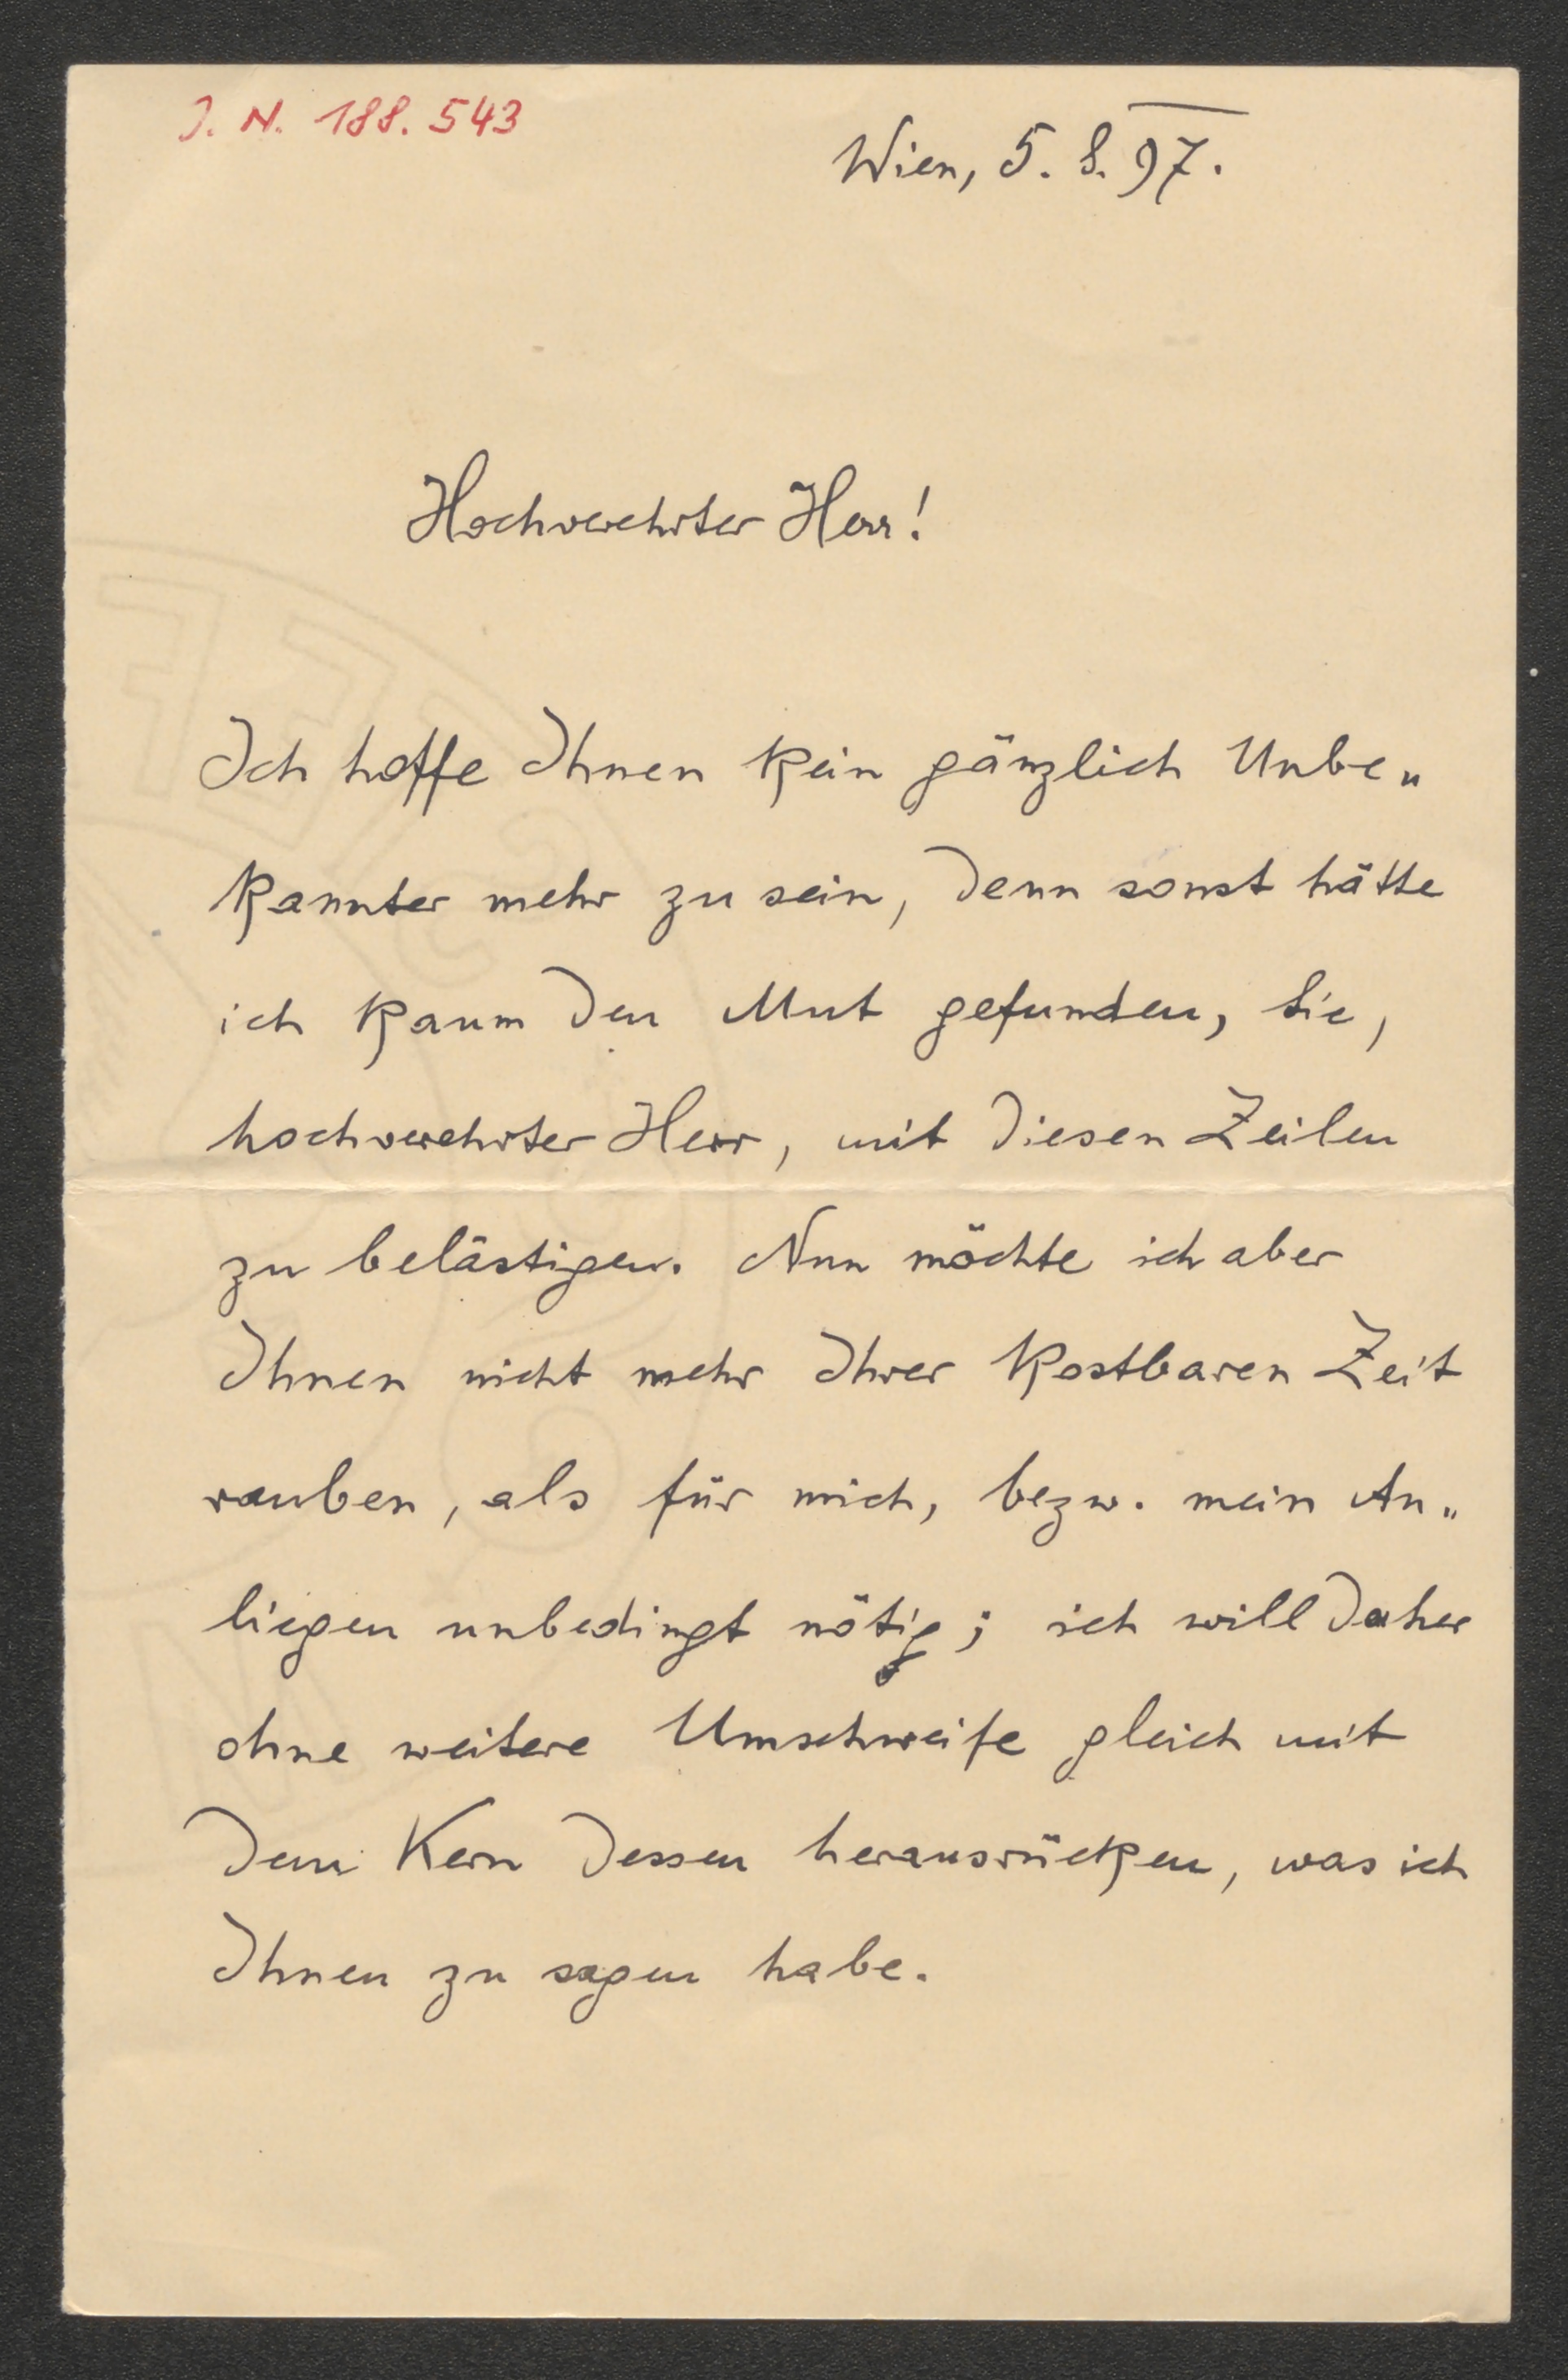 J. N. 188.543
Wien, 5. 8. 97.
Hochverehrter Herr!
Ich hoffe Ihnen kein gänzlich Unbe„
kannter mehr zu sein, denn sonst hätte
ich kaum den Mut gefunden, Sie,
hochverehrter Herr, mit diesen Zeilen
zu belästigen. Nun möchte ich aber
Ihnen nicht mehr Ihrer kostbaren Zeit
rauben, als für mich, bezw. mein An„
liegen unbedingt nötig; ich will daher
ohne weitere Umschweife gleich mit
dem Kern dessen herausrücken, was ich
Ihnen zu sagen habe.